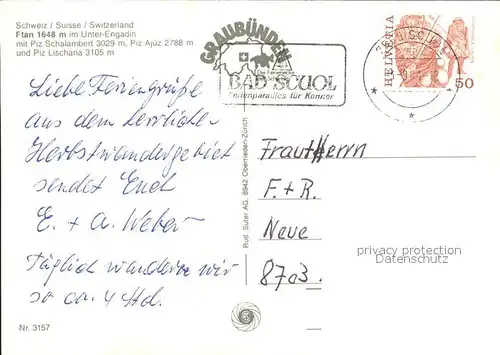 Schweiz / Suisse / Switzerland
Ftan 1648 m im Unter-Engadin
mit Piz Schalambert 3029 m, Piz Ajüz 2788 m
und Piz Lischana 3105 m
GRAUBÜNDEN
BAD SCUOL
Ferienparadies für Kenner
HELVETIA
50
Liebe Feriengrüße
aus dem herrlichen
Herbstwandergebiet
sendet Euch
E. + A. Weber
Täglich wandern wir
so ca. 4 Std.
Rud. Suter AG, 8942 Oberrieden-Zürich
Frau + Herrn
F. + R.
Neue
8703.
privacy protection
watermark for AnsichtskartenKönig
Nr. 3157